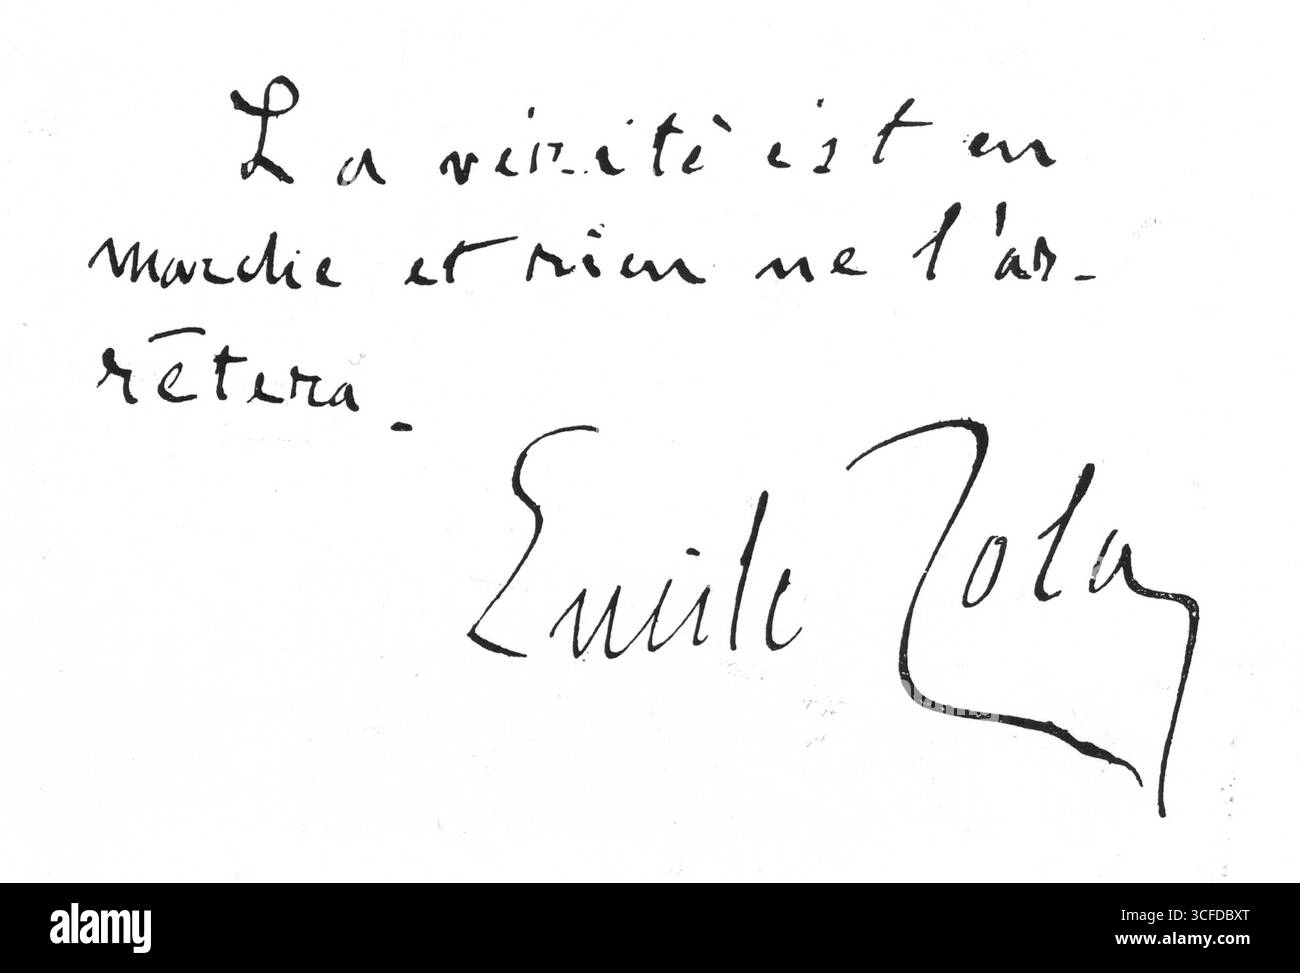 La vérité est en
marche et rien ne l'ar-
rêtera.
Emile Zola
alamy
Image ID: 3CFDBXT
www.alamy.com